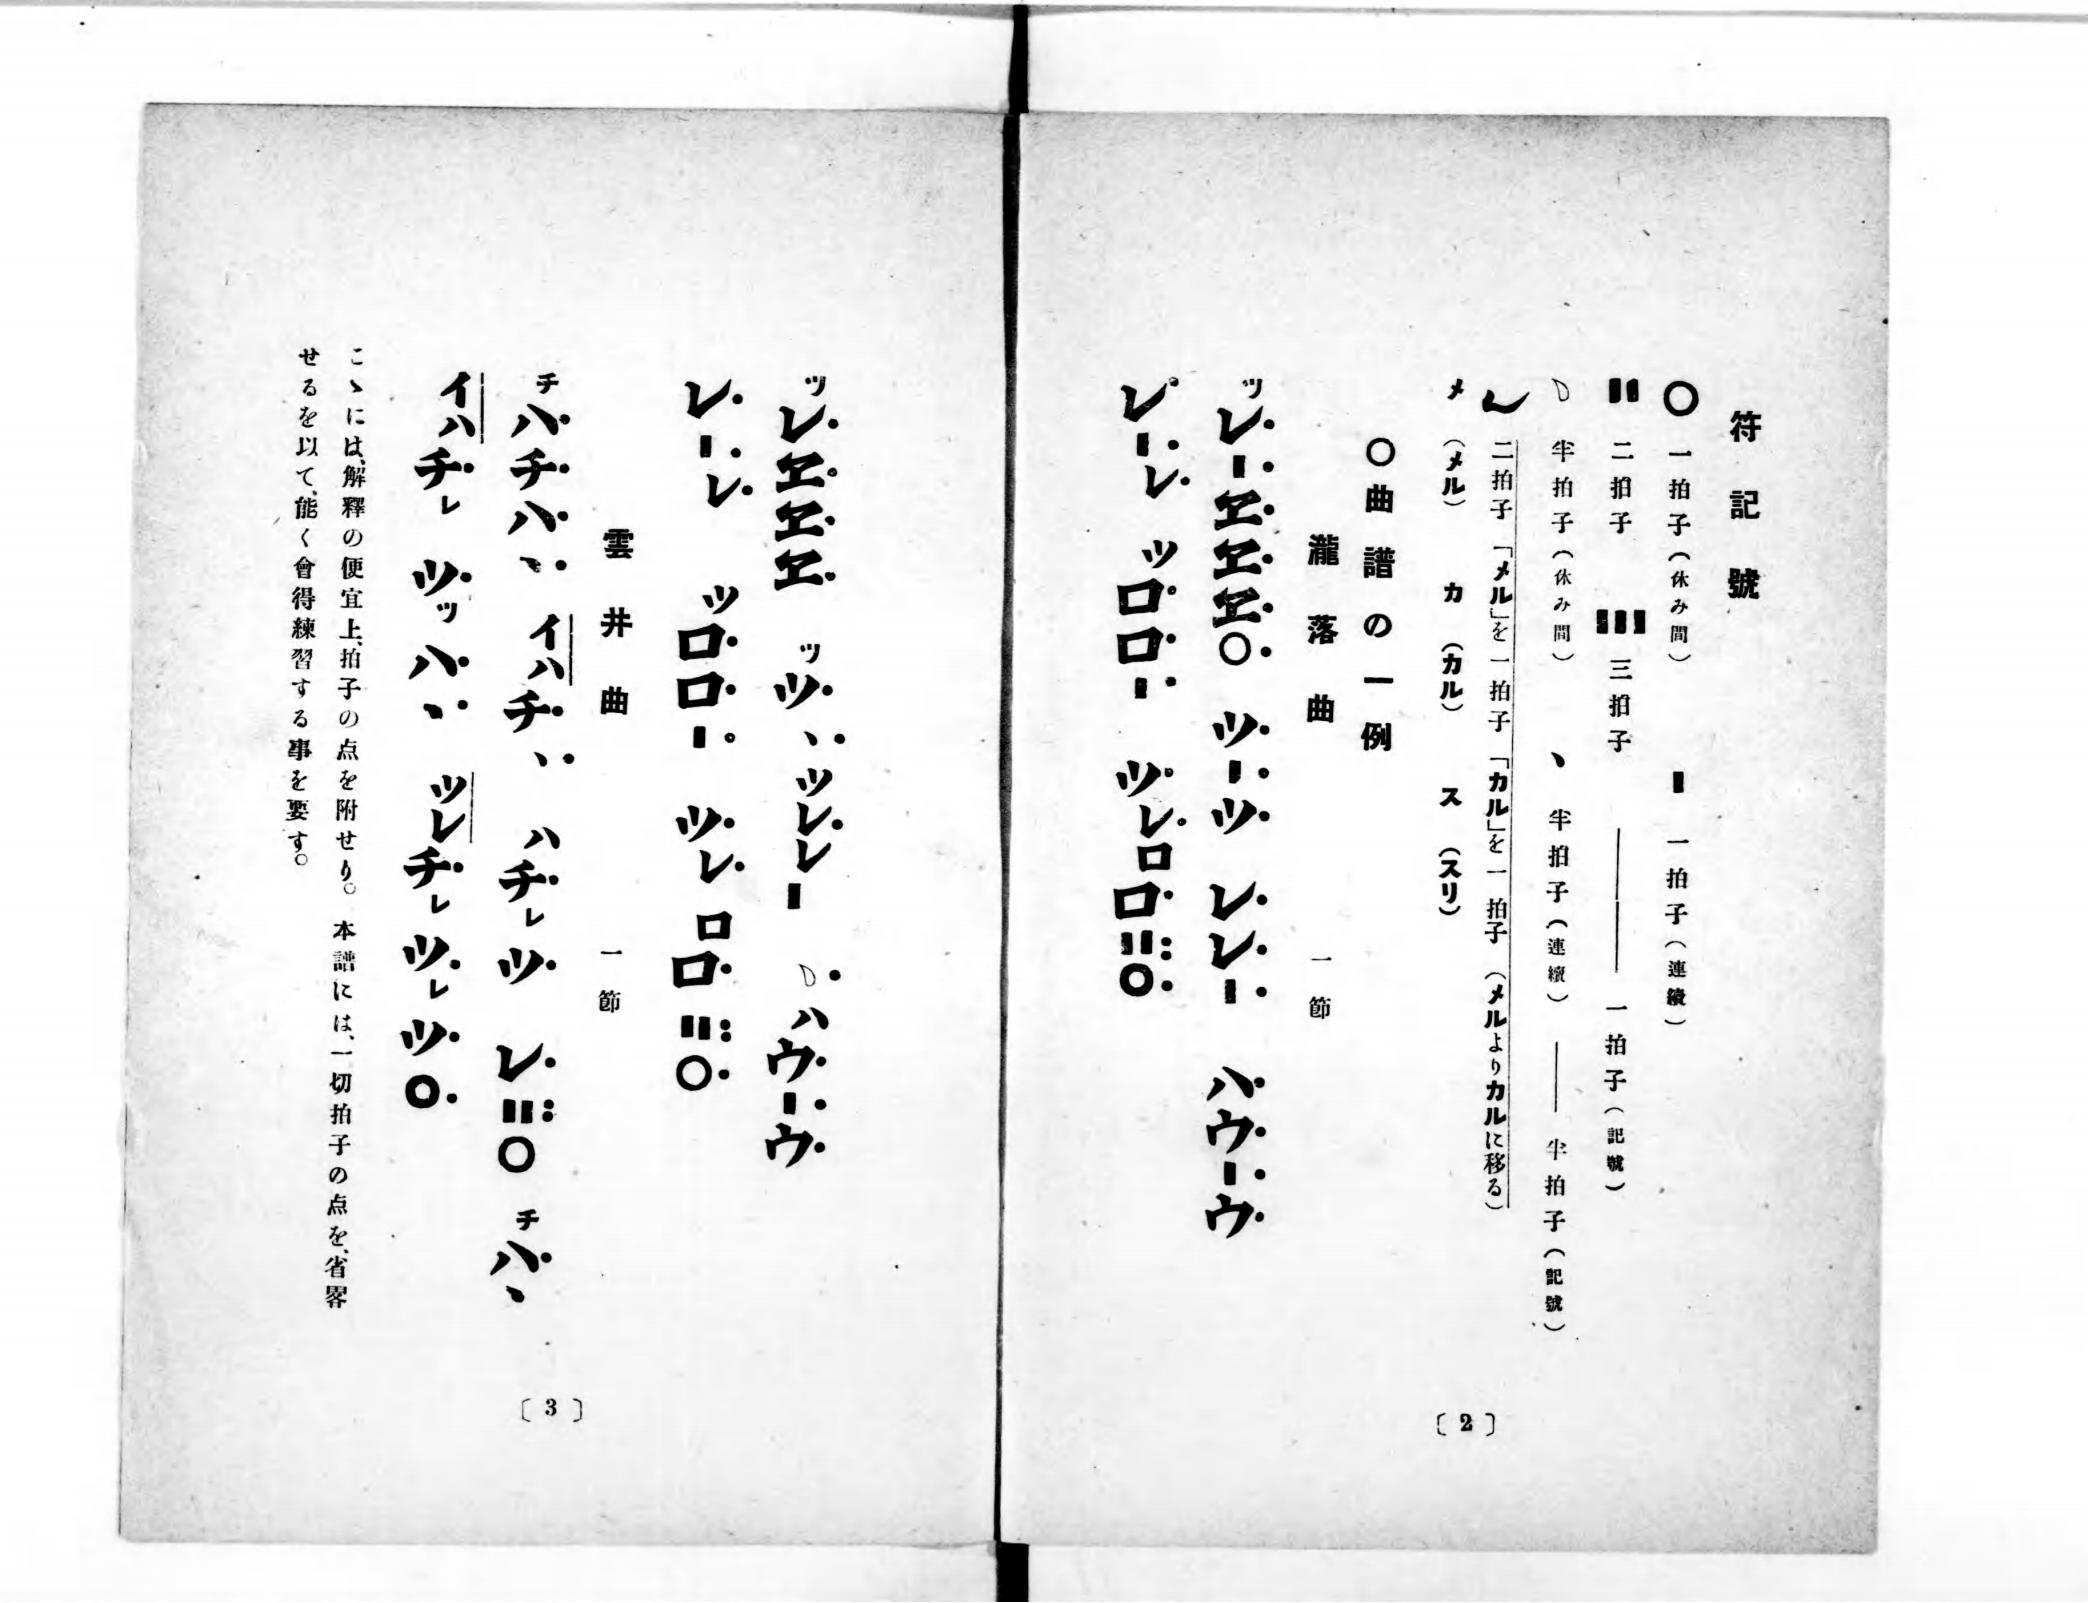 符記號
〇 一拍子(休み間) ｜ 一拍子(連續)
〢 二拍子 〣 三拍子 ―― 一拍子(記號)
半拍子(休み間) 、 半拍子(連續) ― 半拍子(記號)
二拍子「メル」を一拍子「カル」を一拍子(メルよりカルに移る)
メ(メル) カ(カル) ス(スリ)
〇曲譜の一例
瀧落曲 一節
ツレーヱヱヱ〇 ツーツ レレー ハウーウ
レーレ ツロロー ツレロロ〢〇
[2]
ツレヱヱヱ ツツ、ツレレー ハウーウ
レーレ ツロロー ツレロロ〢〇
雲井曲 一節
チハチハ、イハチ、ハチレツ レ〢〇 チハ、
イハチレ ツツハ、ツレチレツレツ〇
こゝには、解釋の便宜上、拍子の点を附せり。本譜には、一切拍子の点を、省畧
せるを以て、能く會得練習する事を要す。
[3]